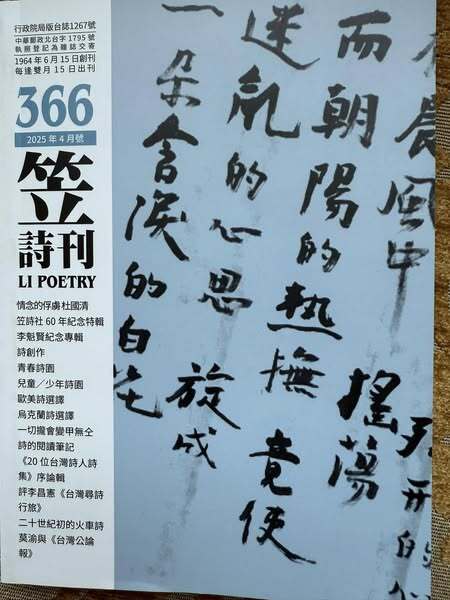 行政院局版台誌1267號
中華郵政北台字1795號
執照登記為雜誌交寄
1964年6月15日創刊
每逢雙月15日出刊
366
2025年4月號
笠
詩刊
LI POETRY
情念的俘虜杜國清
笠詩社60年紀念特輯
李魁賢紀念專輯
詩創作
青春詩園
兒童／少年詩園
歐美詩選譯
烏克蘭詩選譯
一切攏會變甲無仝
詩的閱讀筆記
《20位台灣詩人詩
集》序論輯
評李昌憲《台灣尋詩
行旅》
二十世紀初的火車詩
莫渝與《台灣公論
報》
晨風中 搖蕩
而朝陽的熱撫 竟使
迷亂的心思 放成
一朵含淚的白花